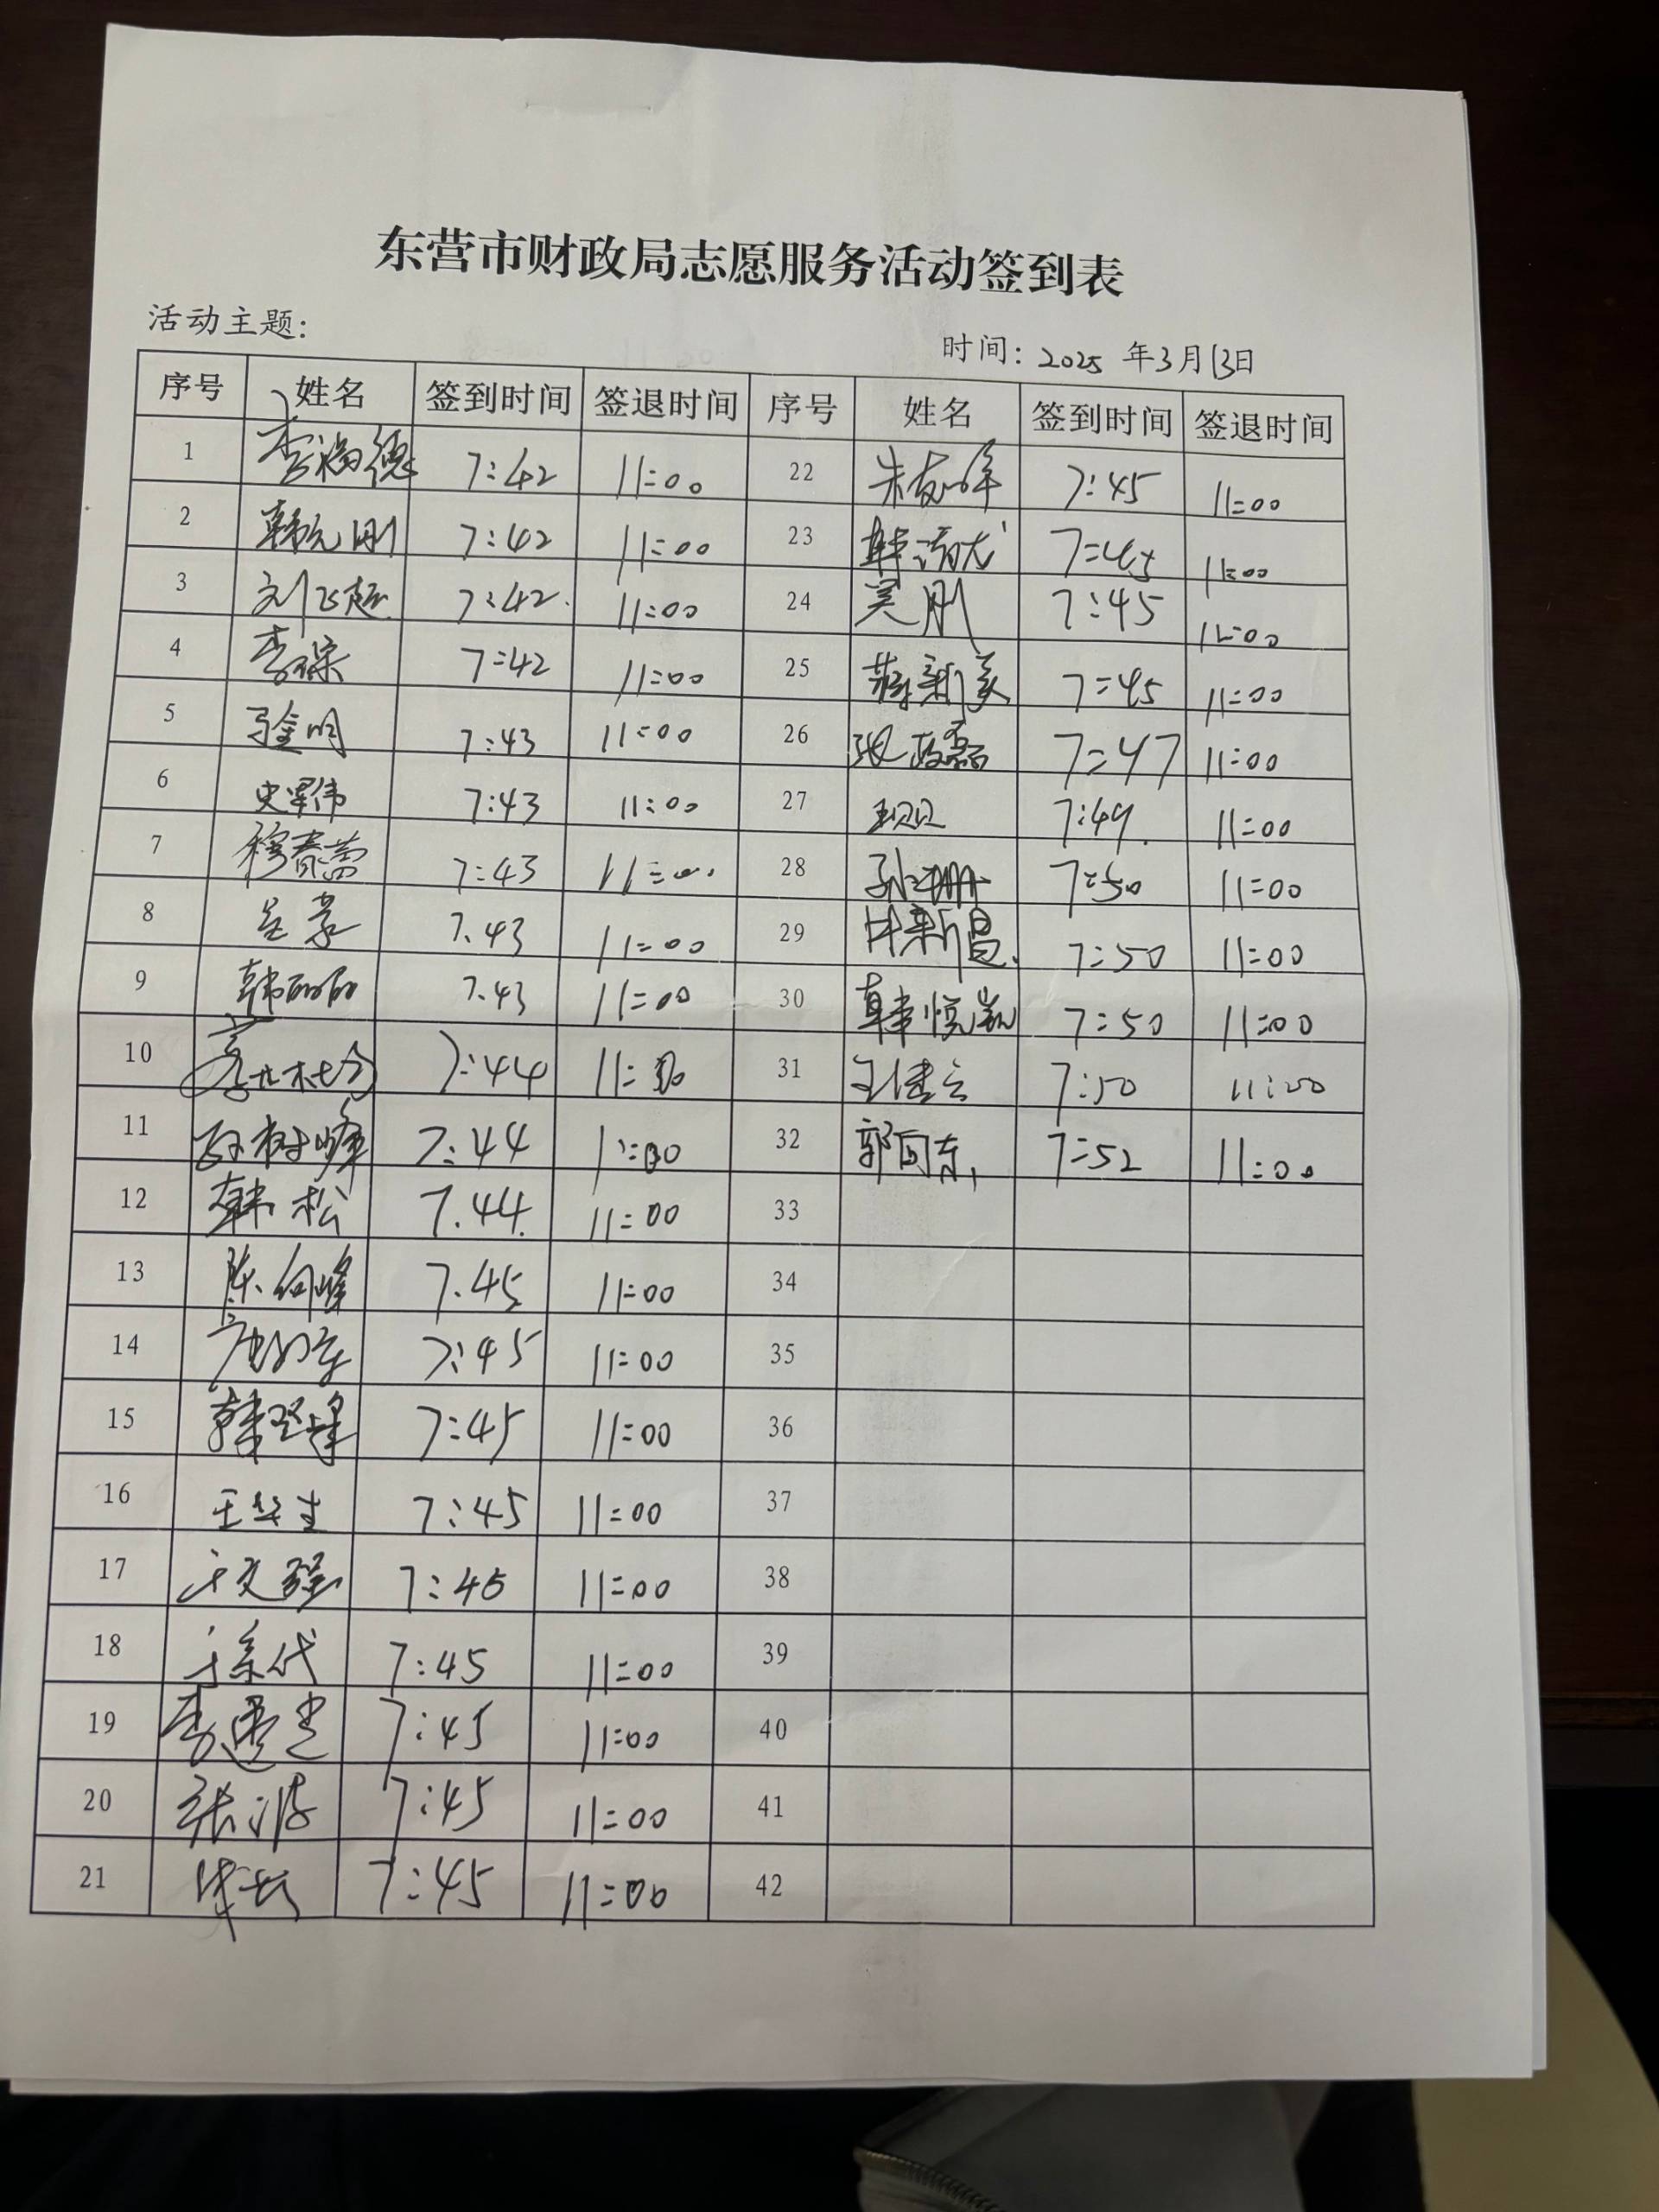 东营市财政局志愿服务活动签到表
活动主题:
时间: 2025 年3月13日
序号 姓名 签到时间 签退时间 序号 姓名 签到时间 签退时间
1 李福德 7:42 11:00 22 朱友峰 7:45 11:00
2 韩元刚 7:42 11:00 23 韩清龙 7:45 11:00
3 刘飞超 7:42 11:00 24 吴刚 7:45 11:00
4 李琛 7:42 11:00 25 蒋新美 7:45 11:00
5 马金明 7:43 11:00 26 张磊 7:47 11:00
6 史军伟 7:43 11:00 27 王贝贝 7:49 11:00
7 穆春苗 7:43 11:00 28 孙珊珊 7:50 11:00
8 7.43 11:00 29 新昌 7:50 11:00
9 韩丽丽 7.43 11:00 30 韩悦凯 7:50 11:00
10 7:44 11:00 31 王建云 7:50 11:00
11 孙树峰 7:44 11:00 32 郭向东 7:52 11:00
12 韩松 7.44 11:00 33
13 陈向峰 7.45 11:00 34
14 7:45 11:00 35
15 韩坚峰 7:45 11:00 36
16 王华生 7:45 11:00 37
17 于文强 7:45 11:00 38
18 7:45 11:00 39
19 李 7:45 11:00 40
20 张波 7:45 11:00 41
21 7:45 11:00 42